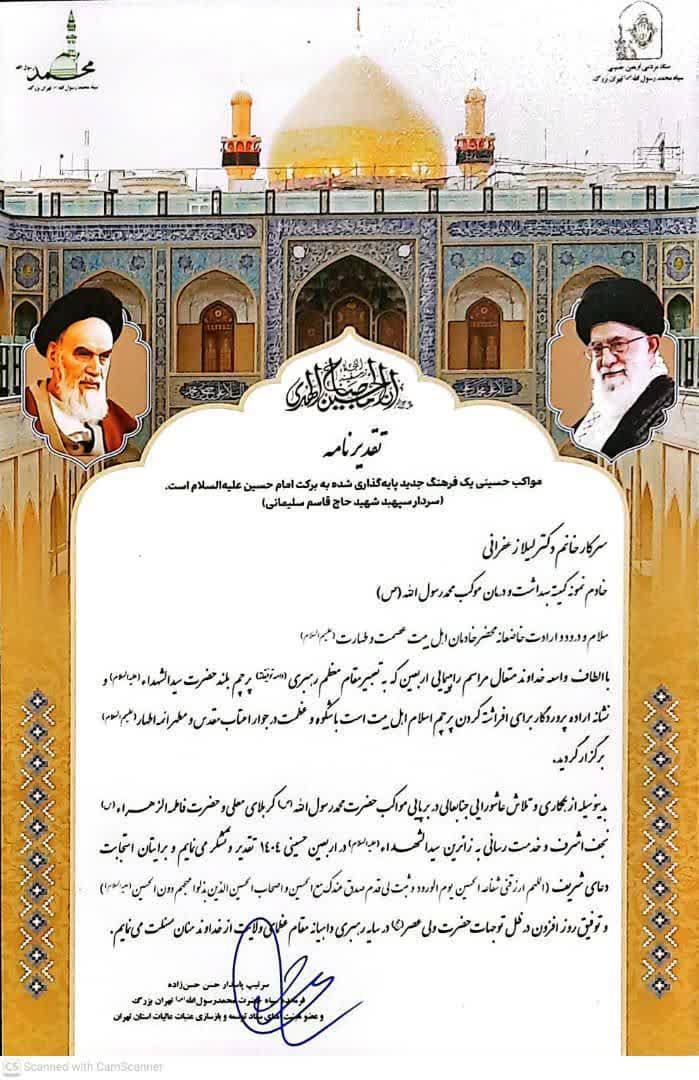 محمد
رسول الله
سپاه محمد رسول الله (ص) تهران بزرگ
ستاد مردمی اربعین حسینی
سپاه محمد رسول الله (ص) تهران بزرگ
ان الحسین مصباح الهدی
تقدیرنامه
مواکب حسینی یک فرهنگ جدید پایه‌گذاری شده به برکت امام حسین علیه‌السلام است.
(سردار سپهبد شهید حاج قاسم سلیمانی)
سرکار خانم دکتر لیلا زعفرانی
خادم نمونه کمیته بهداشت و درمان موکب محمد رسول الله (ص)
سلام و درود و ارادت خاضعانه محضر خادمان اهل بیت عصمت و طهارت (علیهم السلام)
با الطاف واسعه خداوند متعال مراسم راهپیمایی اربعین که به تعبیر مقام معظم رهبری پرچم بلند حضرت سیدالشهداء (علیه السلام) و
نشانه اراده پروردگار برای افراشته کردن پرچم اسلام اهل بیت است باشکوه و عظمت در جوار اعتاب مقدس و مطهر ائمه اطهار (علیهم السلام)
برگزار گردید.
بدینوسیله از همکاری و تلاش عاشورایی جنابعالی در برپایی مواکب حضرت محمد رسول الله (ص) کربلای معلی و حضرت فاطمه الزهراء (س)
نجف اشرف و خدمت رسانی به زائرین سیدالشهداء (علیه السلام) در اربعین حسینی ۱۴۰۴ تقدیر و تشکر می‌نمایم و برایتان استجابت
دعای شریف (اللهم ارزقنی شفاعه الحسین یوم الورود و ثبت لی قدم صدق عندک مع الحسین و اصحاب الحسین الذین بذلوا مهجهم دون الحسین (علیه السلام))
و توفیق روز افزون در ظل توجهات حضرت ولی عصر (عج) در سایه رهبری داهیانه مقام عظمای ولایت از خداوند منان مسئلت می‌نمایم.
سرتیپ پاسدار حسن حسن‌زاده
فرمانده سپاه حضرت محمد رسول الله (ص) تهران بزرگ
و عضو هیئت امنای ستاد توسعه و بازسازی عتبات عالیات استان تهران
CS Scanned with CamScanner